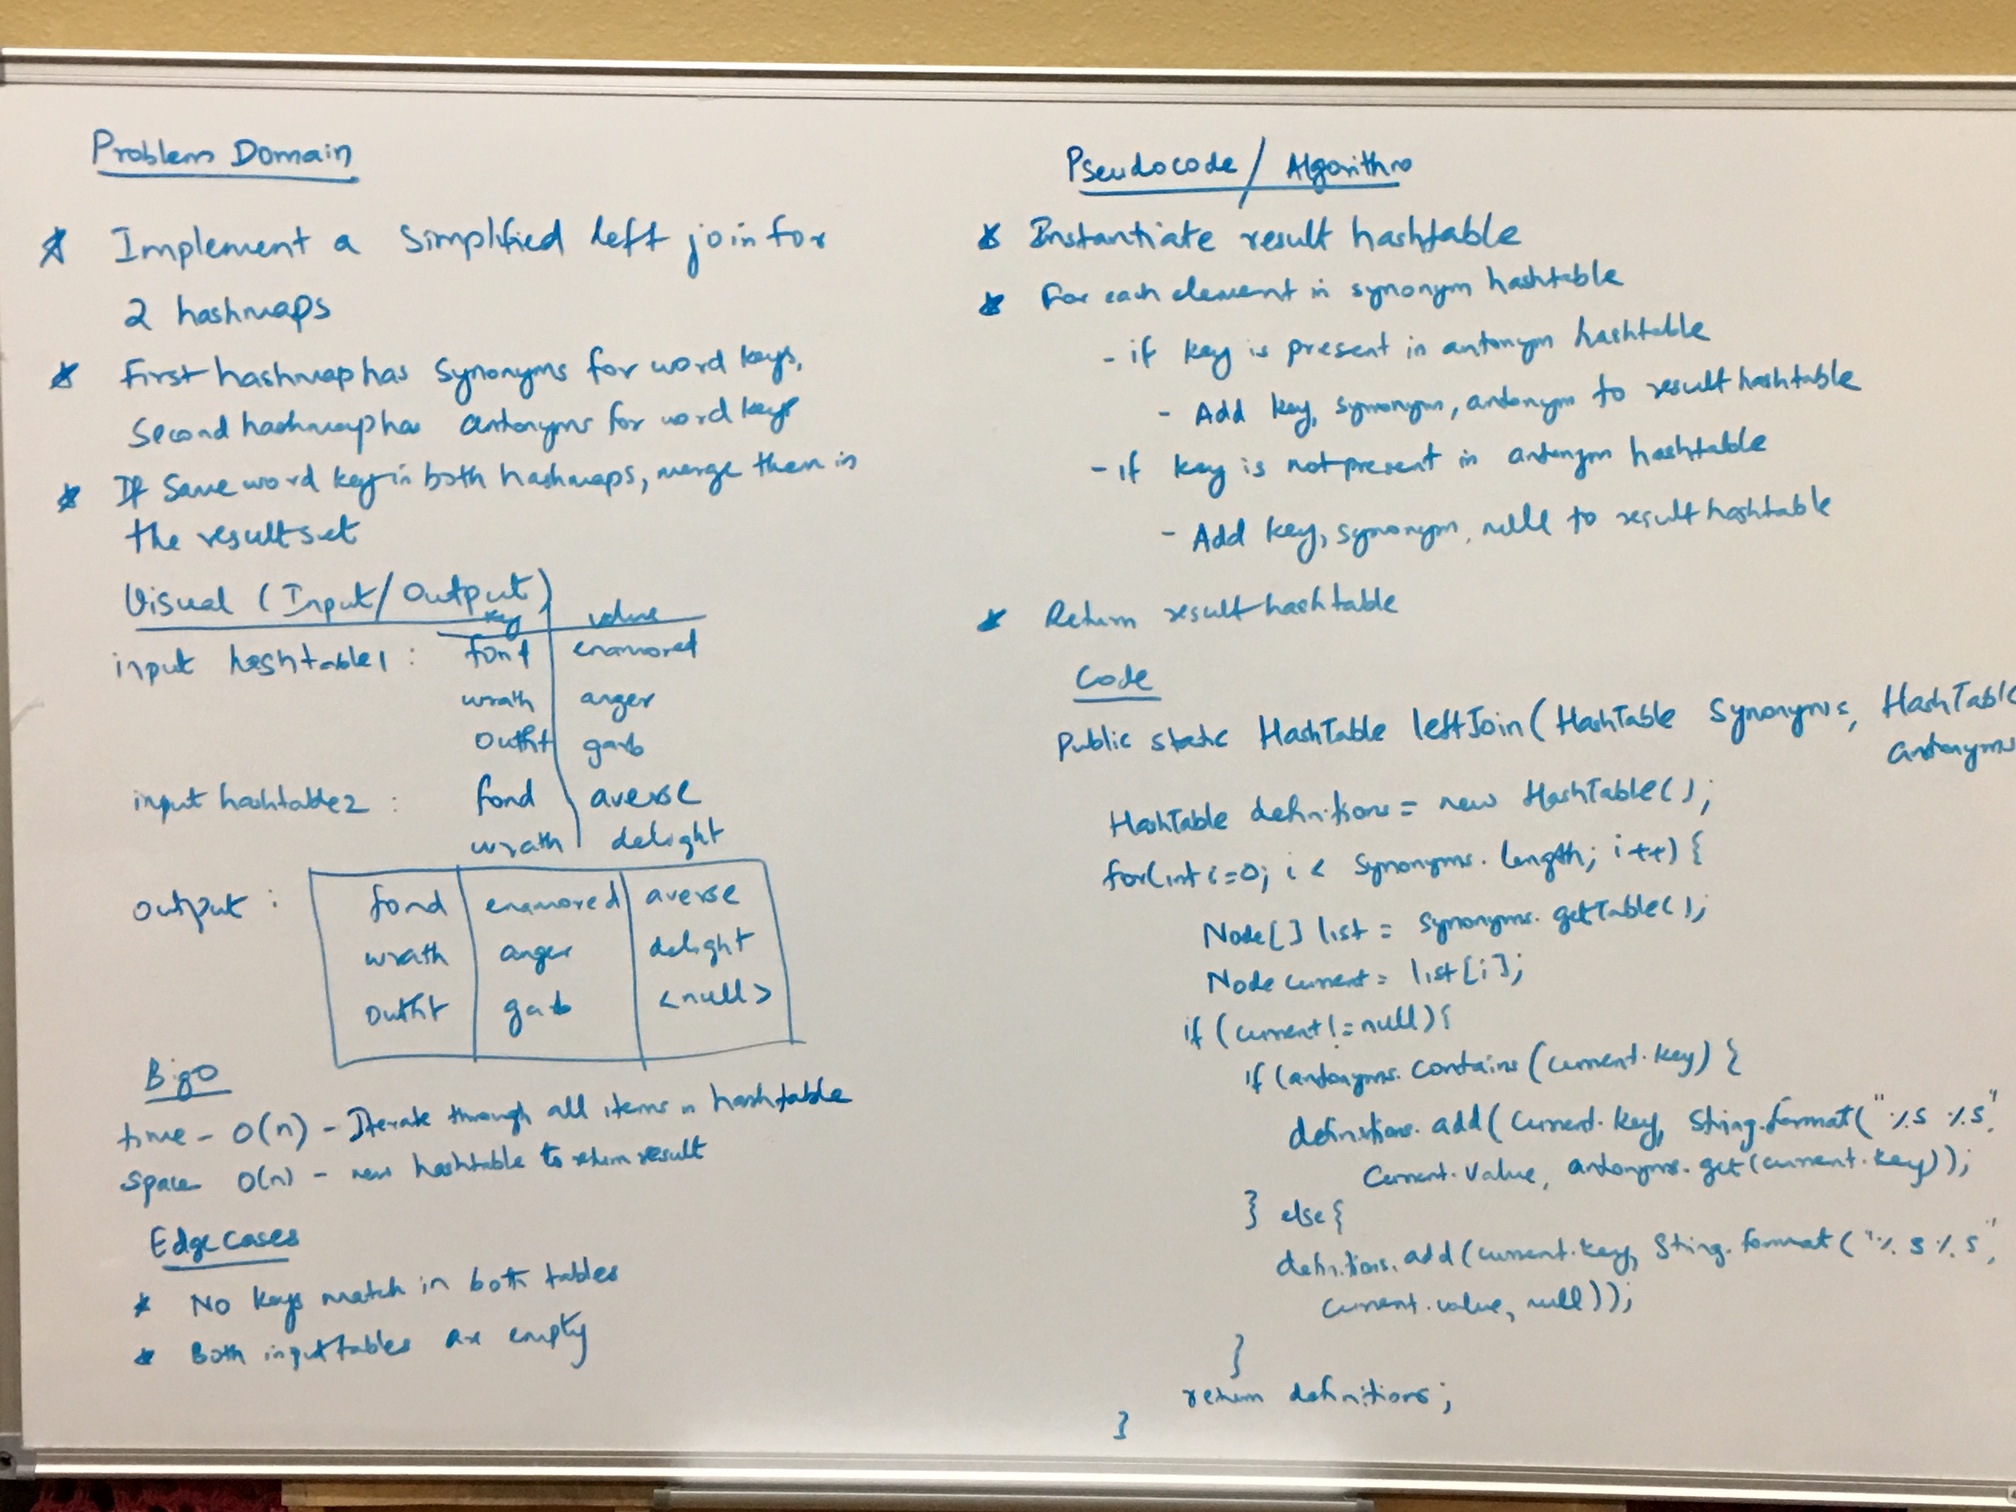 Problem Domain
* Implement a simplified left join for
2 hashmaps
* First hashmap has synonyms for word keys,
Second hashmap has antonyms for word keys
* If same word key in both hashmaps, merge them in
the result set
Visual (Input/Output)
key value
input hashtable1 : fond enamored
wrath anger
outfit garb
input hashtable2 : fond averse
wrath delight
output : fond enamored averse
wrath anger delight
outfit garb <null>
Big O
time - O(n) - Iterate through all items in hashtable
space O(n) - new hashtable to return result
Edge cases
* No keys match in both tables
* Both input tables are empty
Pseudocode / Algorithm
* Instantiate result hashtable
* For each element in synonym hashtable
- if key is present in antonym hashtable
- Add key, synonym, antonym to result hashtable
- if key is not present in antonym hashtable
- Add key, synonym, null to result hashtable
* Return result hashtable
Code
Public static HashTable leftJoin(HashTable Synonyms, HashTable
antonyms
HashTable definitions = new HashTable();
for(int i=0; i < Synonyms.length; i++) {
Node[] list = synonyms.getTable();
Node current = list[i];
if (current != null) {
if (antonyms.contains(current.key) {
definitions.add(current.key, String.format("%s %s",
current.value, antonyms.get(current.key));
} else {
definitions.add(current.key, String.format("%s %s",
current.value, null));
}
return definitions;
}